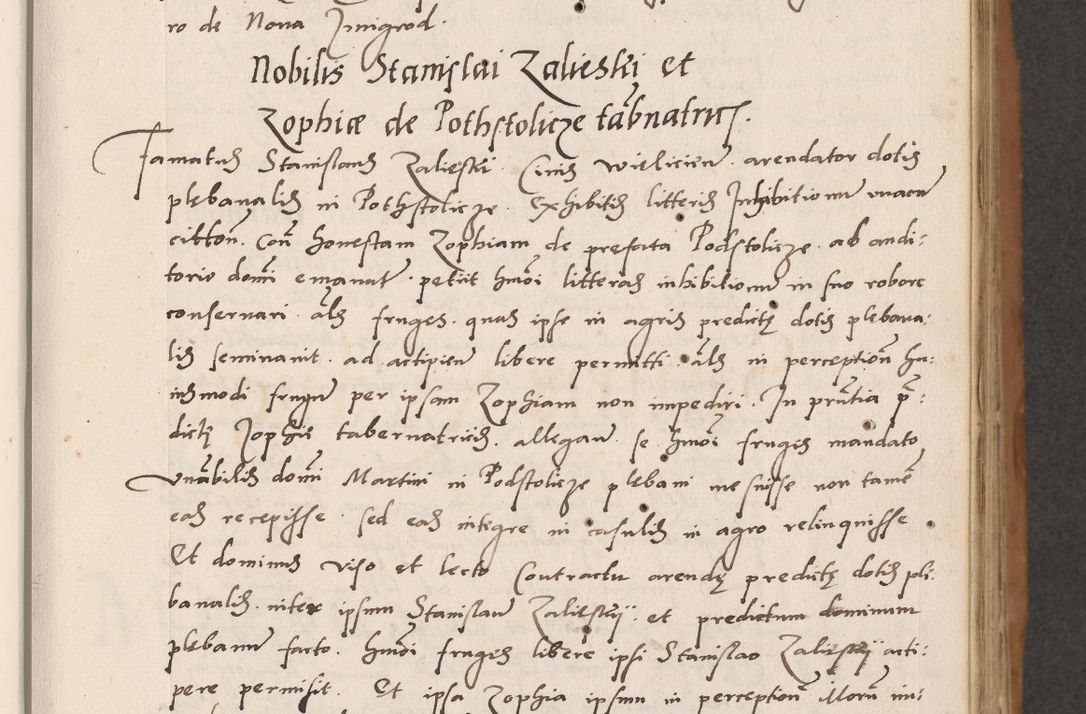 ro de Nova Jmigrod.
Nobilis Stanislai Zalieski et
Zophiæ de Pothstolicze tabnatric.
Famatus Stanislaus Zalieski. Civis Wieliciens. arendator dotis
plebanalis in Pothstolicze. Exhibitis litteris Inhibitionum unacum
citton. Con honestam Zophiam de prefata Podstolicze. ab audi:
torio domi emanat. petiit hmoi litteras inhibitionum in suo robore
conservari. als fruges. quas ipse in agris predictę dotis plebana:
lis seminavit. ad accipien libere permitti. als in perception hu:
iusmodi frugum per ipsam Zophiam non impediri. In pruntia p:
dictę Zophię tabernatricis. allegan se hmoi fruges mandato
vnabilis domi Martini in Podstolicze plebani messuisse non tamen
eas recepisse. sed eas integre in casulis in agro relinquisse
Et dominus viso et lecto Contractu arendę predictę dotis ple:
banalis. inter ipsum Stanislaum Zalieskij. et predictum dominum
plebanum facto. hmoi fruges libere ipsi Stanislao Zalieskij acci:
pere permisit. Et ipsa Zophia ipsum in perception illorum mi: